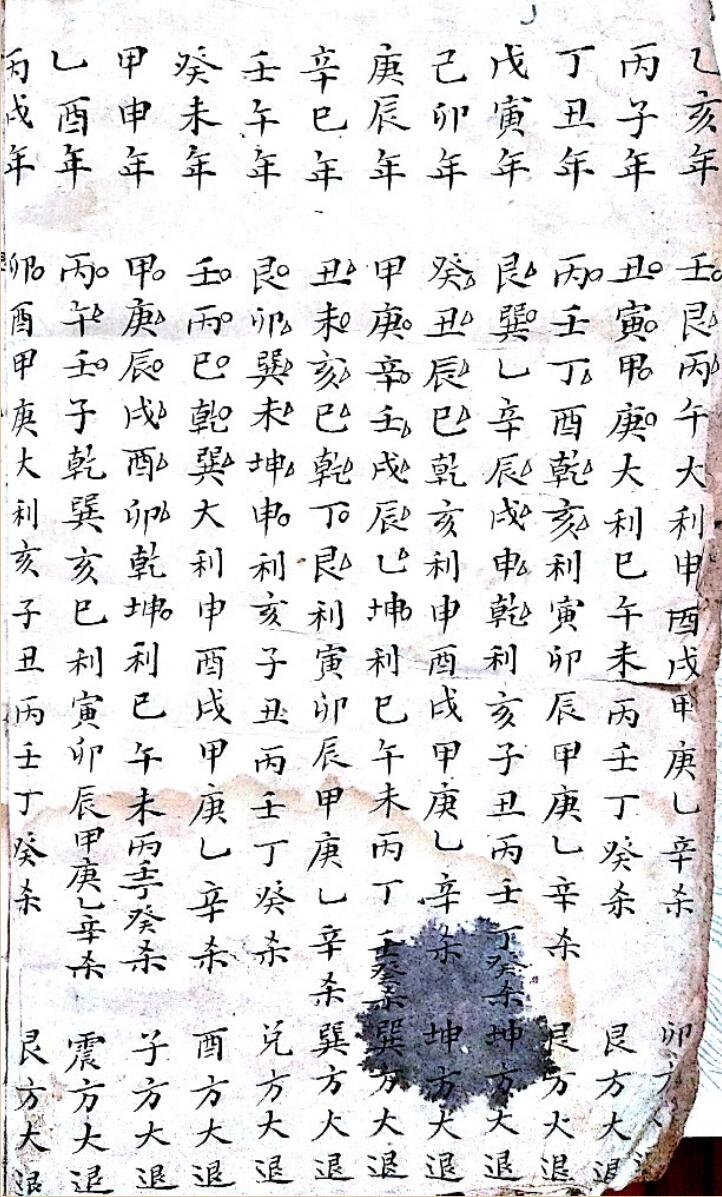 乙亥年 壬艮丙午大利申酉戌甲庚乙辛杀 卯方
丙子年 丑寅甲庚大利巳午未丙壬丁癸杀 艮方大退
丁丑年 丙壬丁酉乾亥利寅卯辰甲庚乙辛杀 艮方大退
戊寅年 艮巽乙辛辰戌申乾利亥子丑丙壬丁癸杀 坤方大退
己卯年 癸丑辰巳乾亥利申酉戌甲庚乙辛杀 坤方大退
庚辰年 甲庚辛壬戌辰乙坤利巳午未丙丁壬癸杀 巽方大退
辛巳年 丑未亥巳乾丁艮利寅卯辰甲庚乙辛杀 巽方大退
壬午年 艮卯巽未坤申利亥子丑丙壬丁癸杀 兑方大退
癸未年 壬丙巳乾巽大利申酉戌甲庚乙辛杀 酉方大退
甲申年 甲庚辰戌酉卯乾坤利巳午未丙壬丁癸杀 子方大退
乙酉年 丙午壬子乾巽亥巳利寅卯辰甲庚乙辛杀 震方大退
丙戌年 卯酉甲庚大利亥子丑丙壬丁癸杀 艮方大退